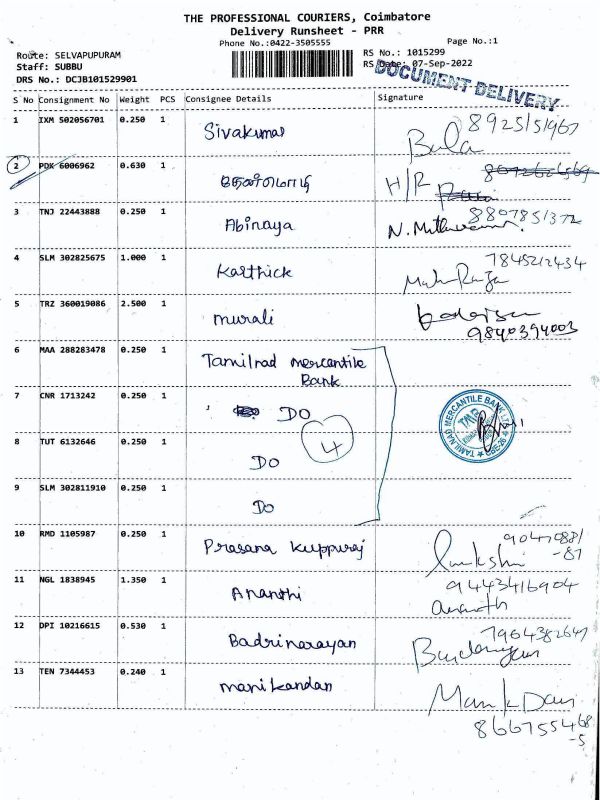 THE PROFESSIONAL COURIERS, Coimbatore
Delivery Runsheet - PRR
Phone No.:0422-3505555
Page No.:1
Route: SELVAPUPURAM
RS No.: 1015299
Staff: SUBBU
RS Date: 07-Sep-2022
DRS No.: DCJB101529901
DOCUMENT DELIVERY
S No Consignment No Weight PCS Consignee Details Signature
1 IXM 502056701 0.250 1 Sivakumar Bala 8925151967
2 PDK 6006962 0.630 1 தேன்மொழி H/R
3 TNJ 22443888 0.250 1 Abinaya 8807851372
4 SLM 302825675 1.000 1 Karthick 7845212434
5 TRZ 360019086 2.500 1 murali 9840394003
6 MAA 288283478 0.250 1 Tamilnad mercantile
Bank
7 CNR 1713242 0.250 1 DO
TAMILNAD MERCANTILE BANK LTD
TMB
8 TUT 6132646 0.250 1 DO
4
9 SLM 302811910 0.250 1 DO
10 RMD 1105987 0.250 1 Prasana kuppuraj
11 NGL 1838945 1.350 1 Ananthi 9443416904
12 DPI 10216615 0.530 1 Badrinarayan 7964382647
13 TEN 7344453 0.240 1 manikandan
866755468
-5